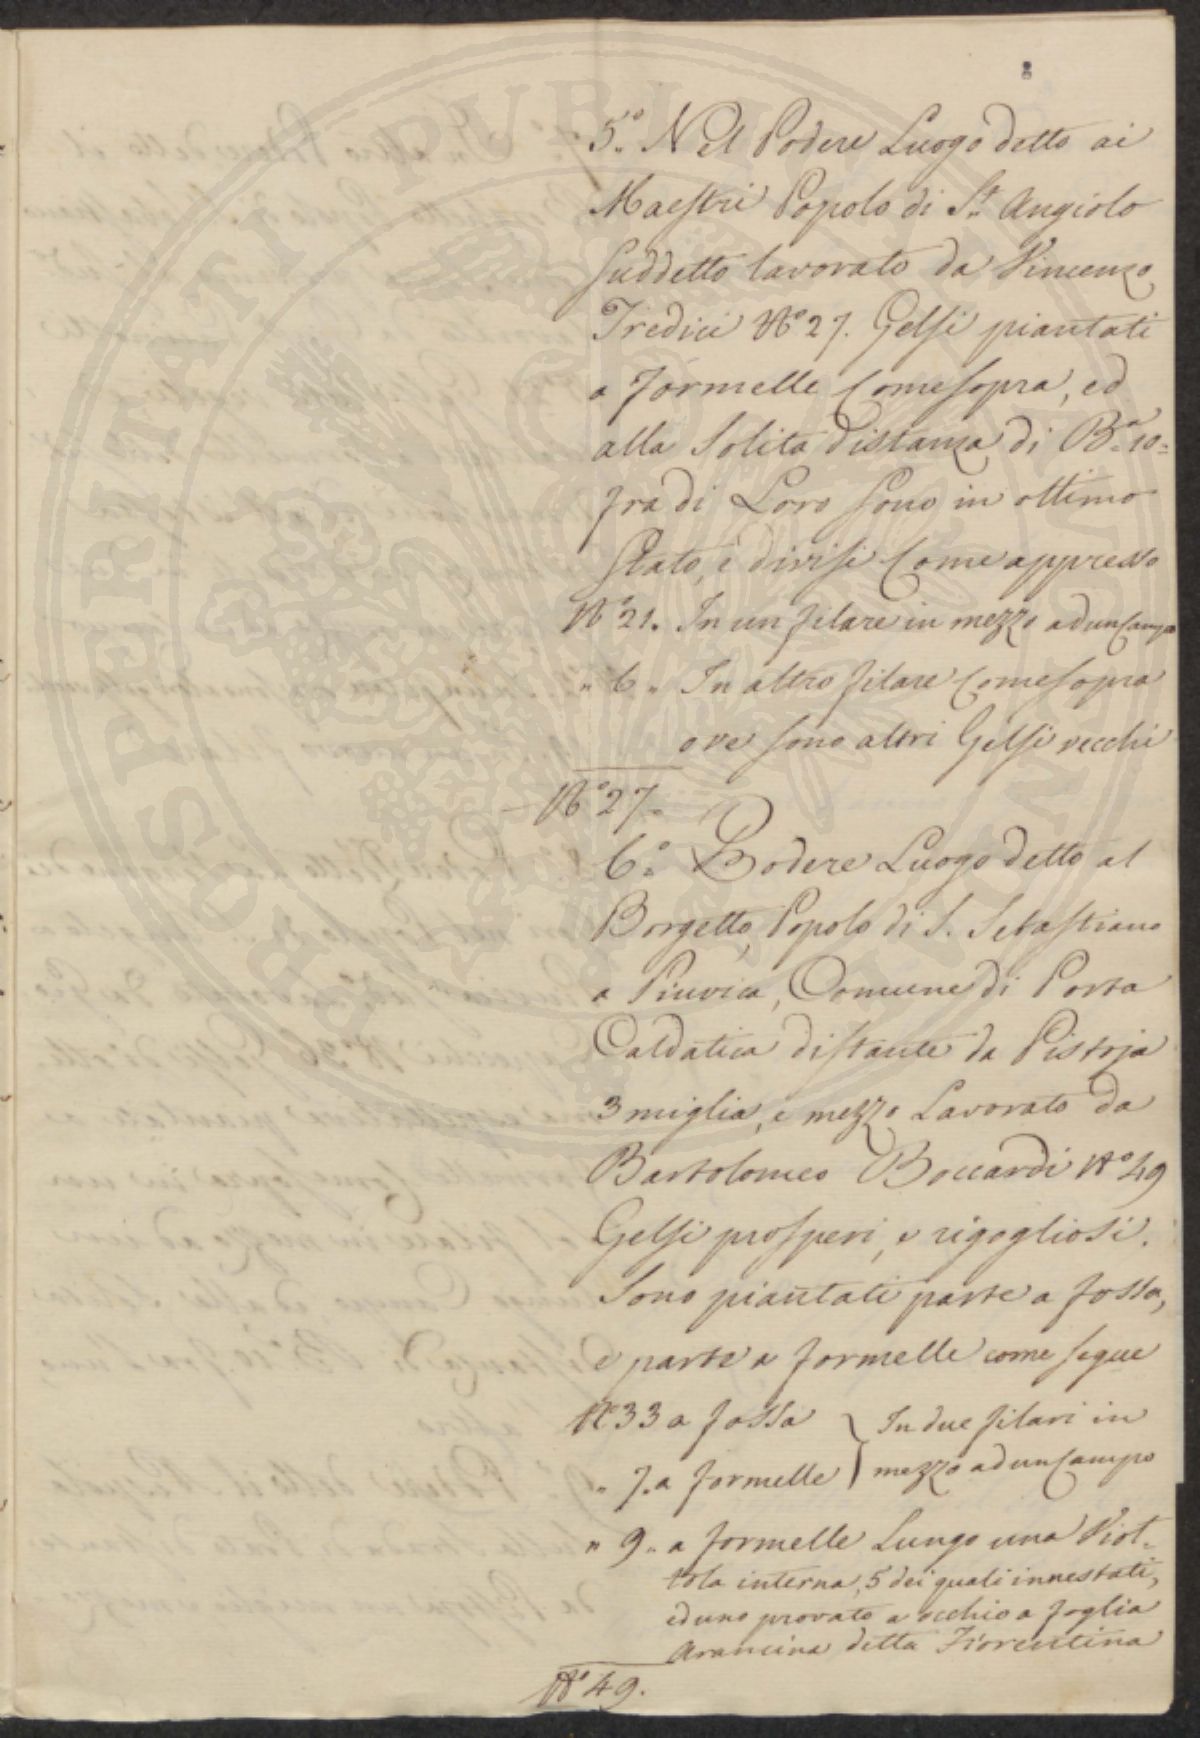 8
5.º Nel Podere Luogo detto ai
Maestri Popolo di S.t Angiolo
Suddetto lavorato da Vincenzo
Tredici Nº 27. Gelsi piantati
a formelle Come sopra, ed
alla Solita distanza di B.a 10=
fra di Loro sono in ottimo
Stato, e divisi Come appresso
Nº 21. In un filare in mezzo ad un Campo
" 6 " In altro filare Come sopra
ove sono altri Gelsi vecchi
Nº 27.
6.º Podere Luogo detto al
Borgetto, Popolo di S. Sebastiano
a Piuvica, Comune di Porta
Caldatica distante da Pistoja
3 miglia, e mezzo Lavorato da
Bartolomeo Boccardi Nº 49
Gelsi prosperi, e rigogliosi.
Sono piantati parte a fossa,
e parte a formelle come segue
Nº 33 a fossa } In due filari in
" 7. a formelle } mezzo ad un Campo
" 9. a formelle Lungo una Viot=
tola interna, 5 dei quali innestati,
ed uno provato a occhio a foglia
Arancina detta Fiorentina
Nº 49.
PROSPERITATI PUBLICAE